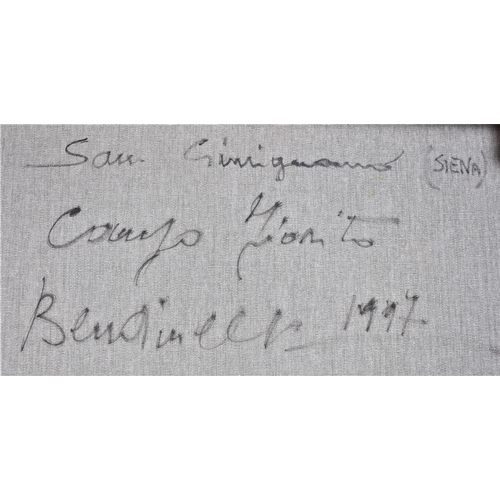 San Gimignano (SIENA)
Campo Fiorito
Bendinelli 1997